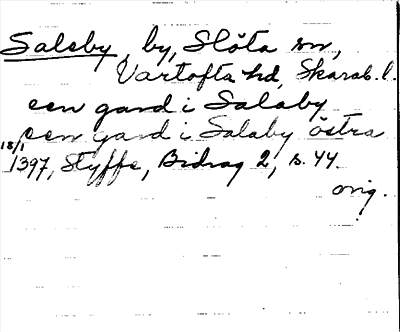 Saleby, by, Slöta sn,
Vartofta hd, Skarab. l.
een gard i Salaby
een gard i Salaby östra
18/1
1397, Styffe, Bidrag 2, s. 44.
orig.